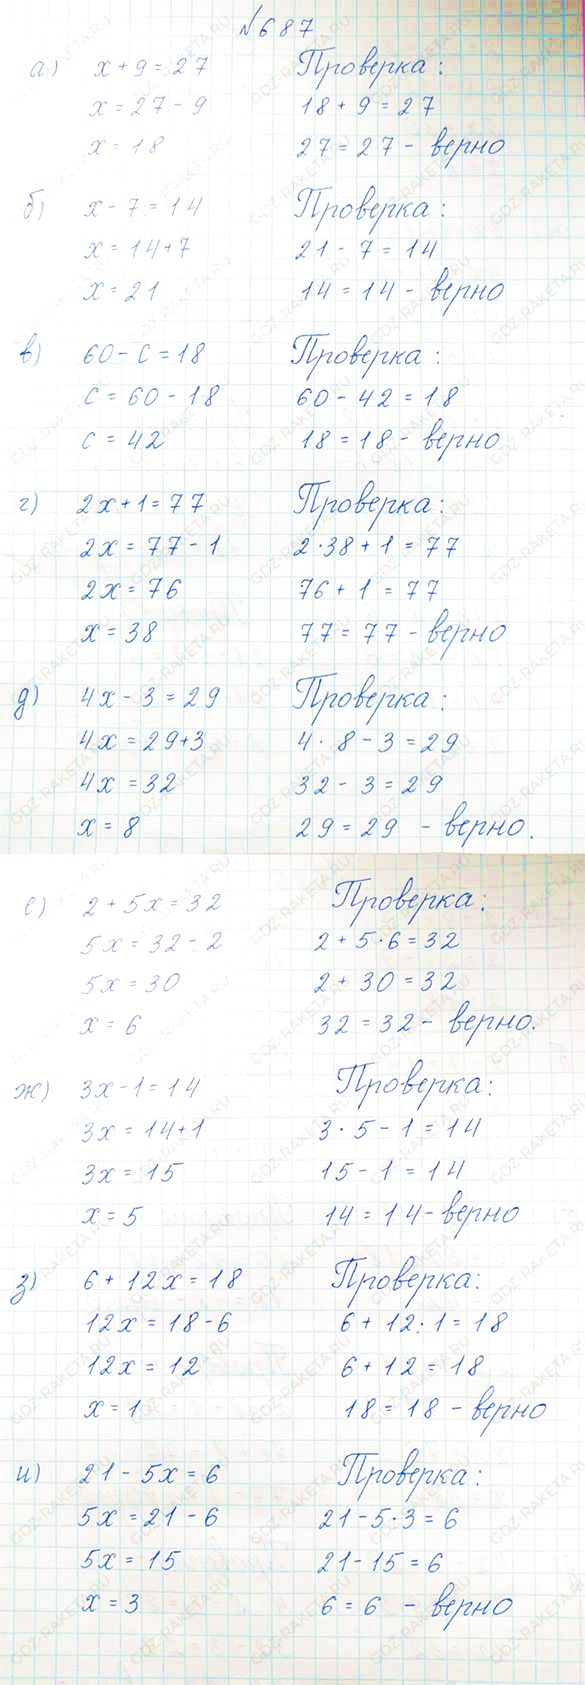 №687
а) x + 9 = 27 Проверка:
x = 27 - 9 18 + 9 = 27
x = 18 27 = 27 - верно
б) x - 7 = 14 Проверка:
x = 14 + 7 21 - 7 = 14
x = 21 14 = 14 - верно
в) 60 - c = 18 Проверка:
c = 60 - 18 60 - 42 = 18
c = 42 18 = 18 - верно
г) 2x + 1 = 77 Проверка:
2x = 77 - 1 2·38 + 1 = 77
2x = 76 76 + 1 = 77
x = 38 77 = 77 - верно
д) 4x - 3 = 29 Проверка:
4x = 29 + 3 4·8 - 3 = 29
4x = 32 32 - 3 = 29
x = 8 29 = 29 - верно.
е) 2 + 5x = 32 Проверка:
5x = 32 - 2 2 + 5·6 = 32
5x = 30 2 + 30 = 32
x = 6 32 = 32 - верно.
ж) 3x - 1 = 14 Проверка:
3x = 14 + 1 3·5 - 1 = 14
3x = 15 15 - 1 = 14
x = 5 14 = 14 - верно
з) 6 + 12x = 18 Проверка:
12x = 18 - 6 6 + 12·1 = 18
12x = 12 6 + 12 = 18
x = 1 18 = 18 - верно
и) 21 - 5x = 6 Проверка:
5x = 21 - 6 21 - 5·3 = 6
5x = 15 21 - 15 = 6
x = 3 6 = 6 - верно
GDZ-RAKETA.RU